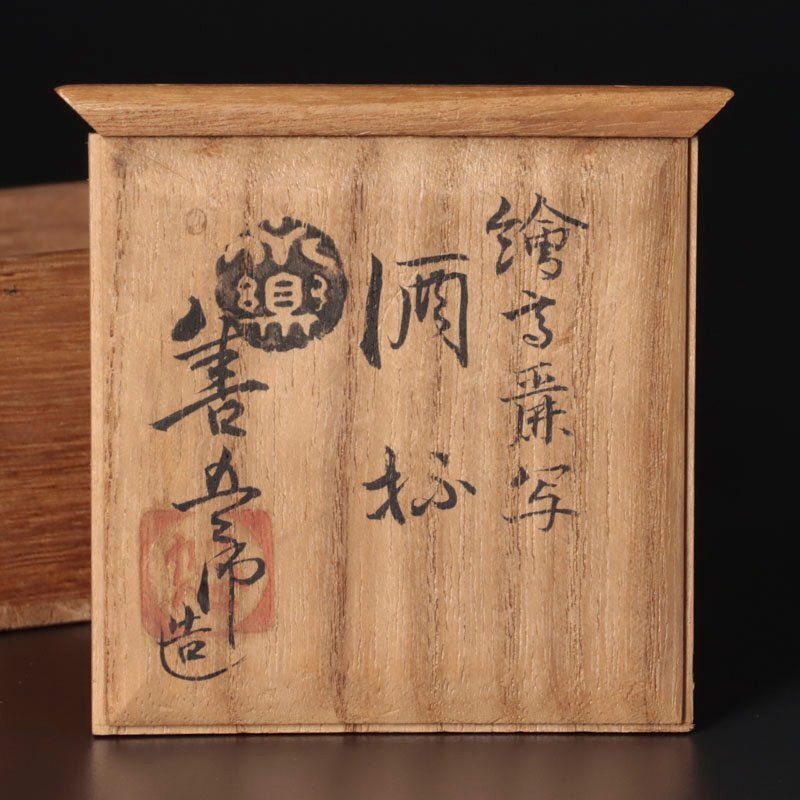 繪高麗写
酒杯
善五郎造